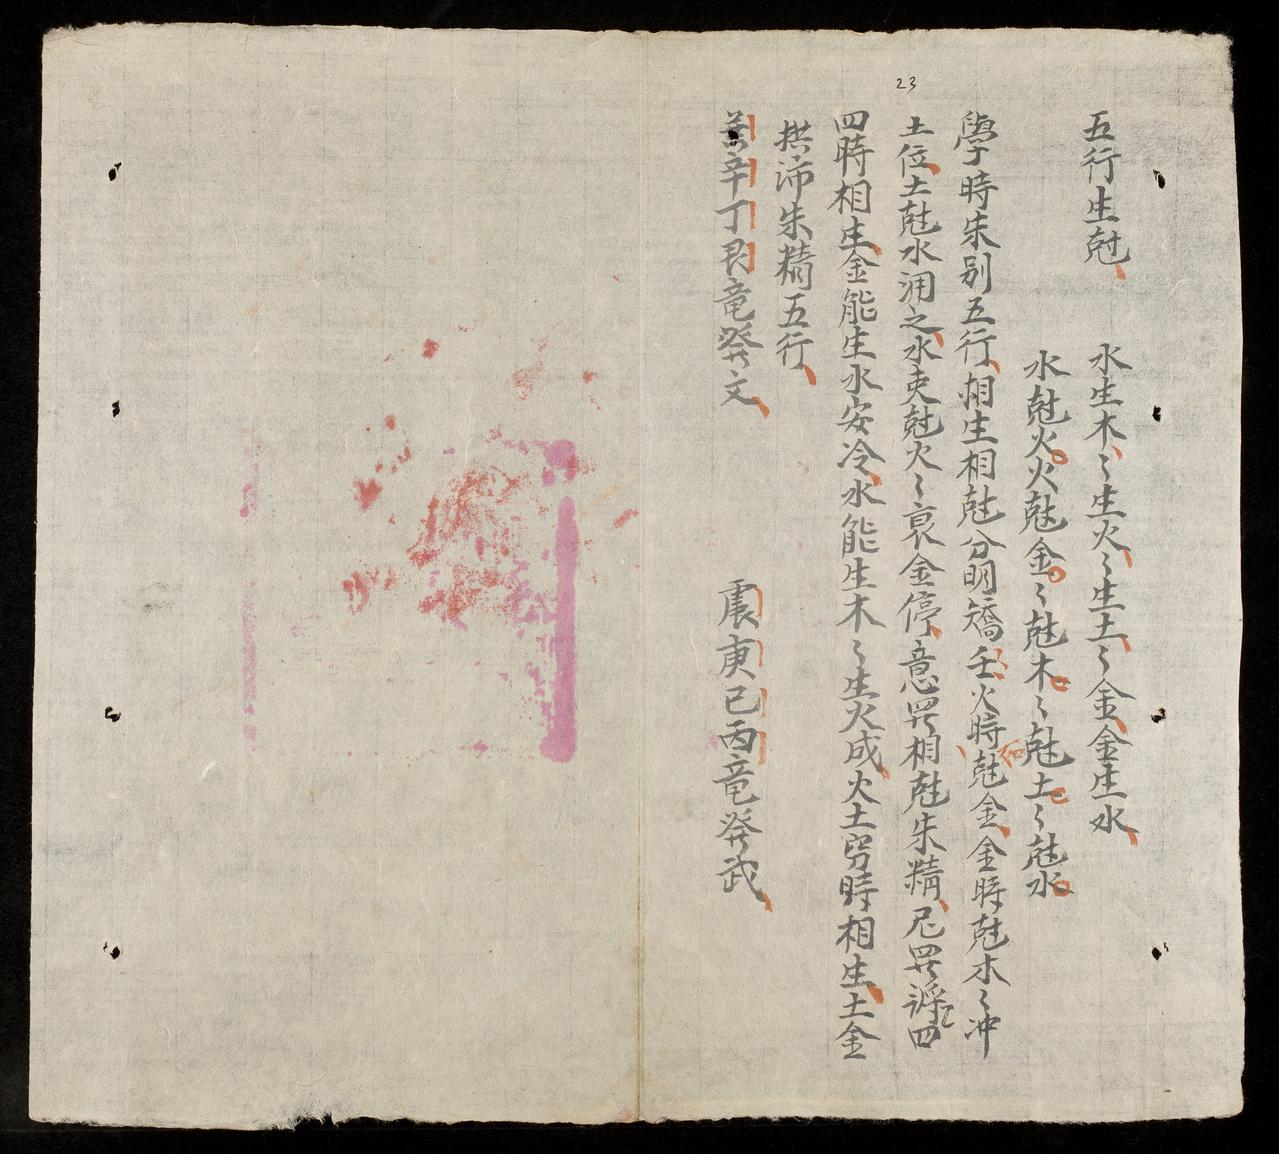 23
五行生尅
水生木〻生火〻生土〻金金生水
水尅火火尅金〻尅木〻尅土〻尅水
學時朱别五行相生相尅分明矯壬火時尅金金時尅木〻冲
土位土尅水润之水吏尅火〻衰金停意罢相尅朱精尼罢謘四
四時相生金能生水安冷水能生木〻生火成火土穷時相生土金
拱沛朱精五行
辛丁竜癸文
震庚已丙竜癸武